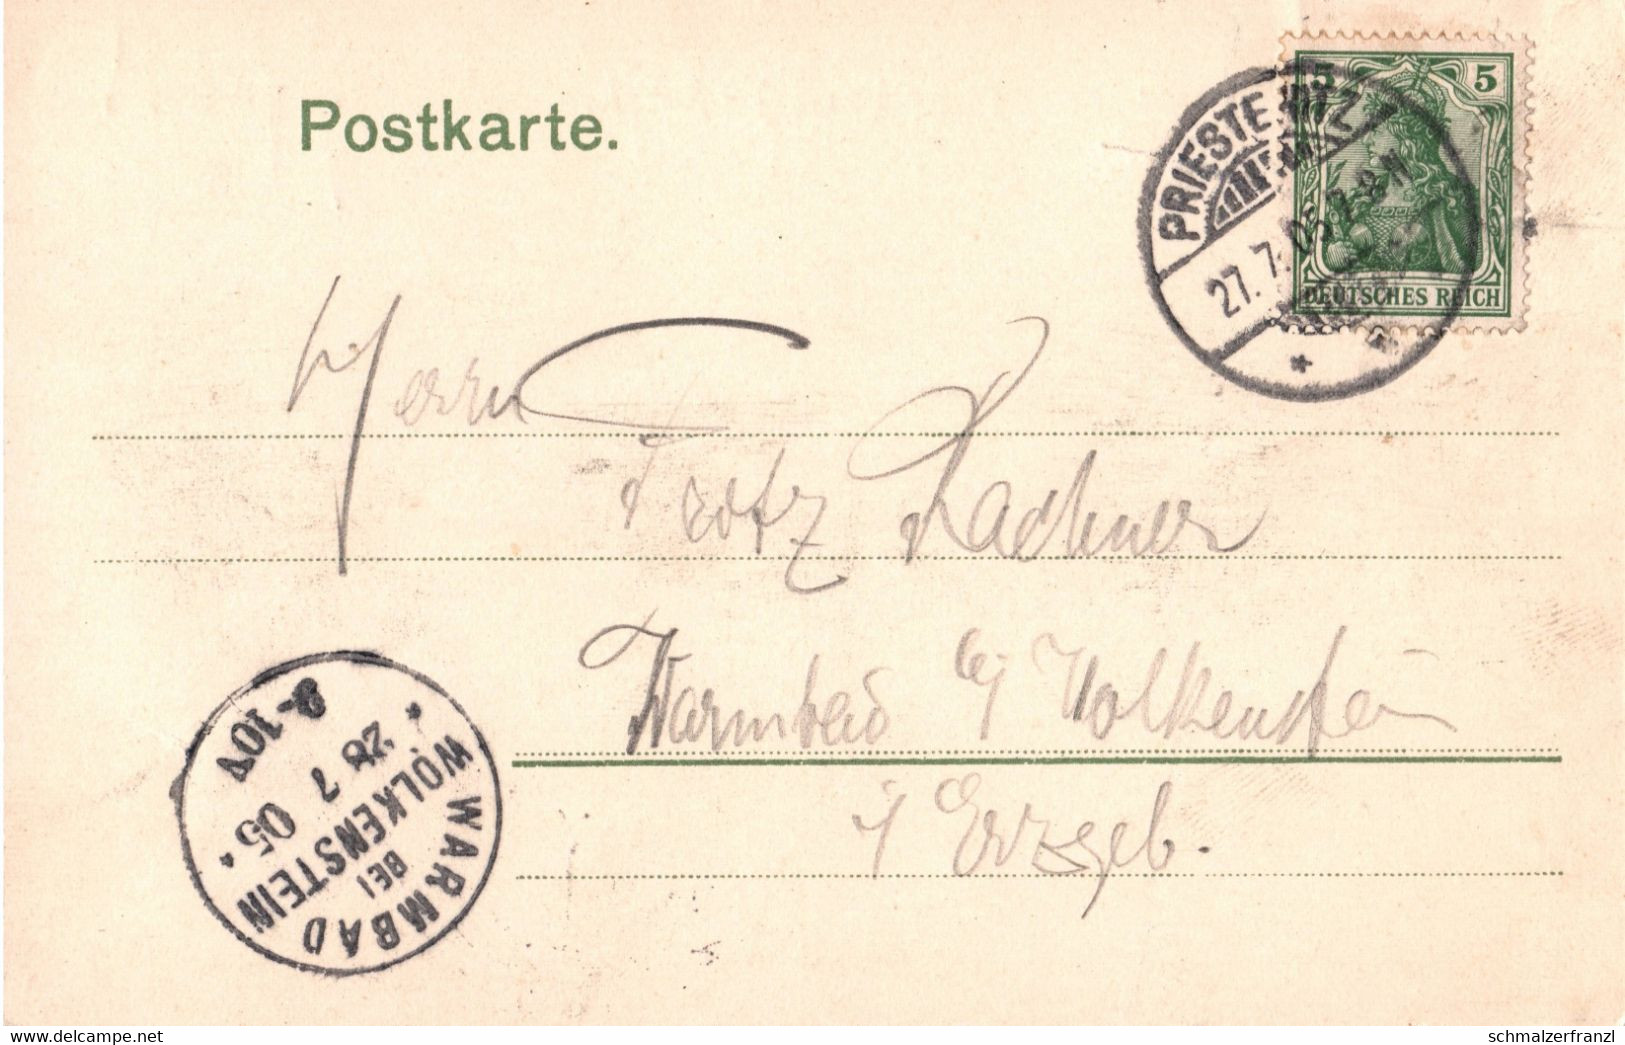 Postkarte.
5 5
DEUTSCHES REICH
PRIESTEWITZ
27.7.05 7-8N
Herrn
Fritz Lachner
Warmbad b/ Wolkenstein
i/ Erzgeb.
WARMBAD
BEI
WOLKENSTEIN
28 7 05
9-10V
delcampe.net
schmalzerfranzl